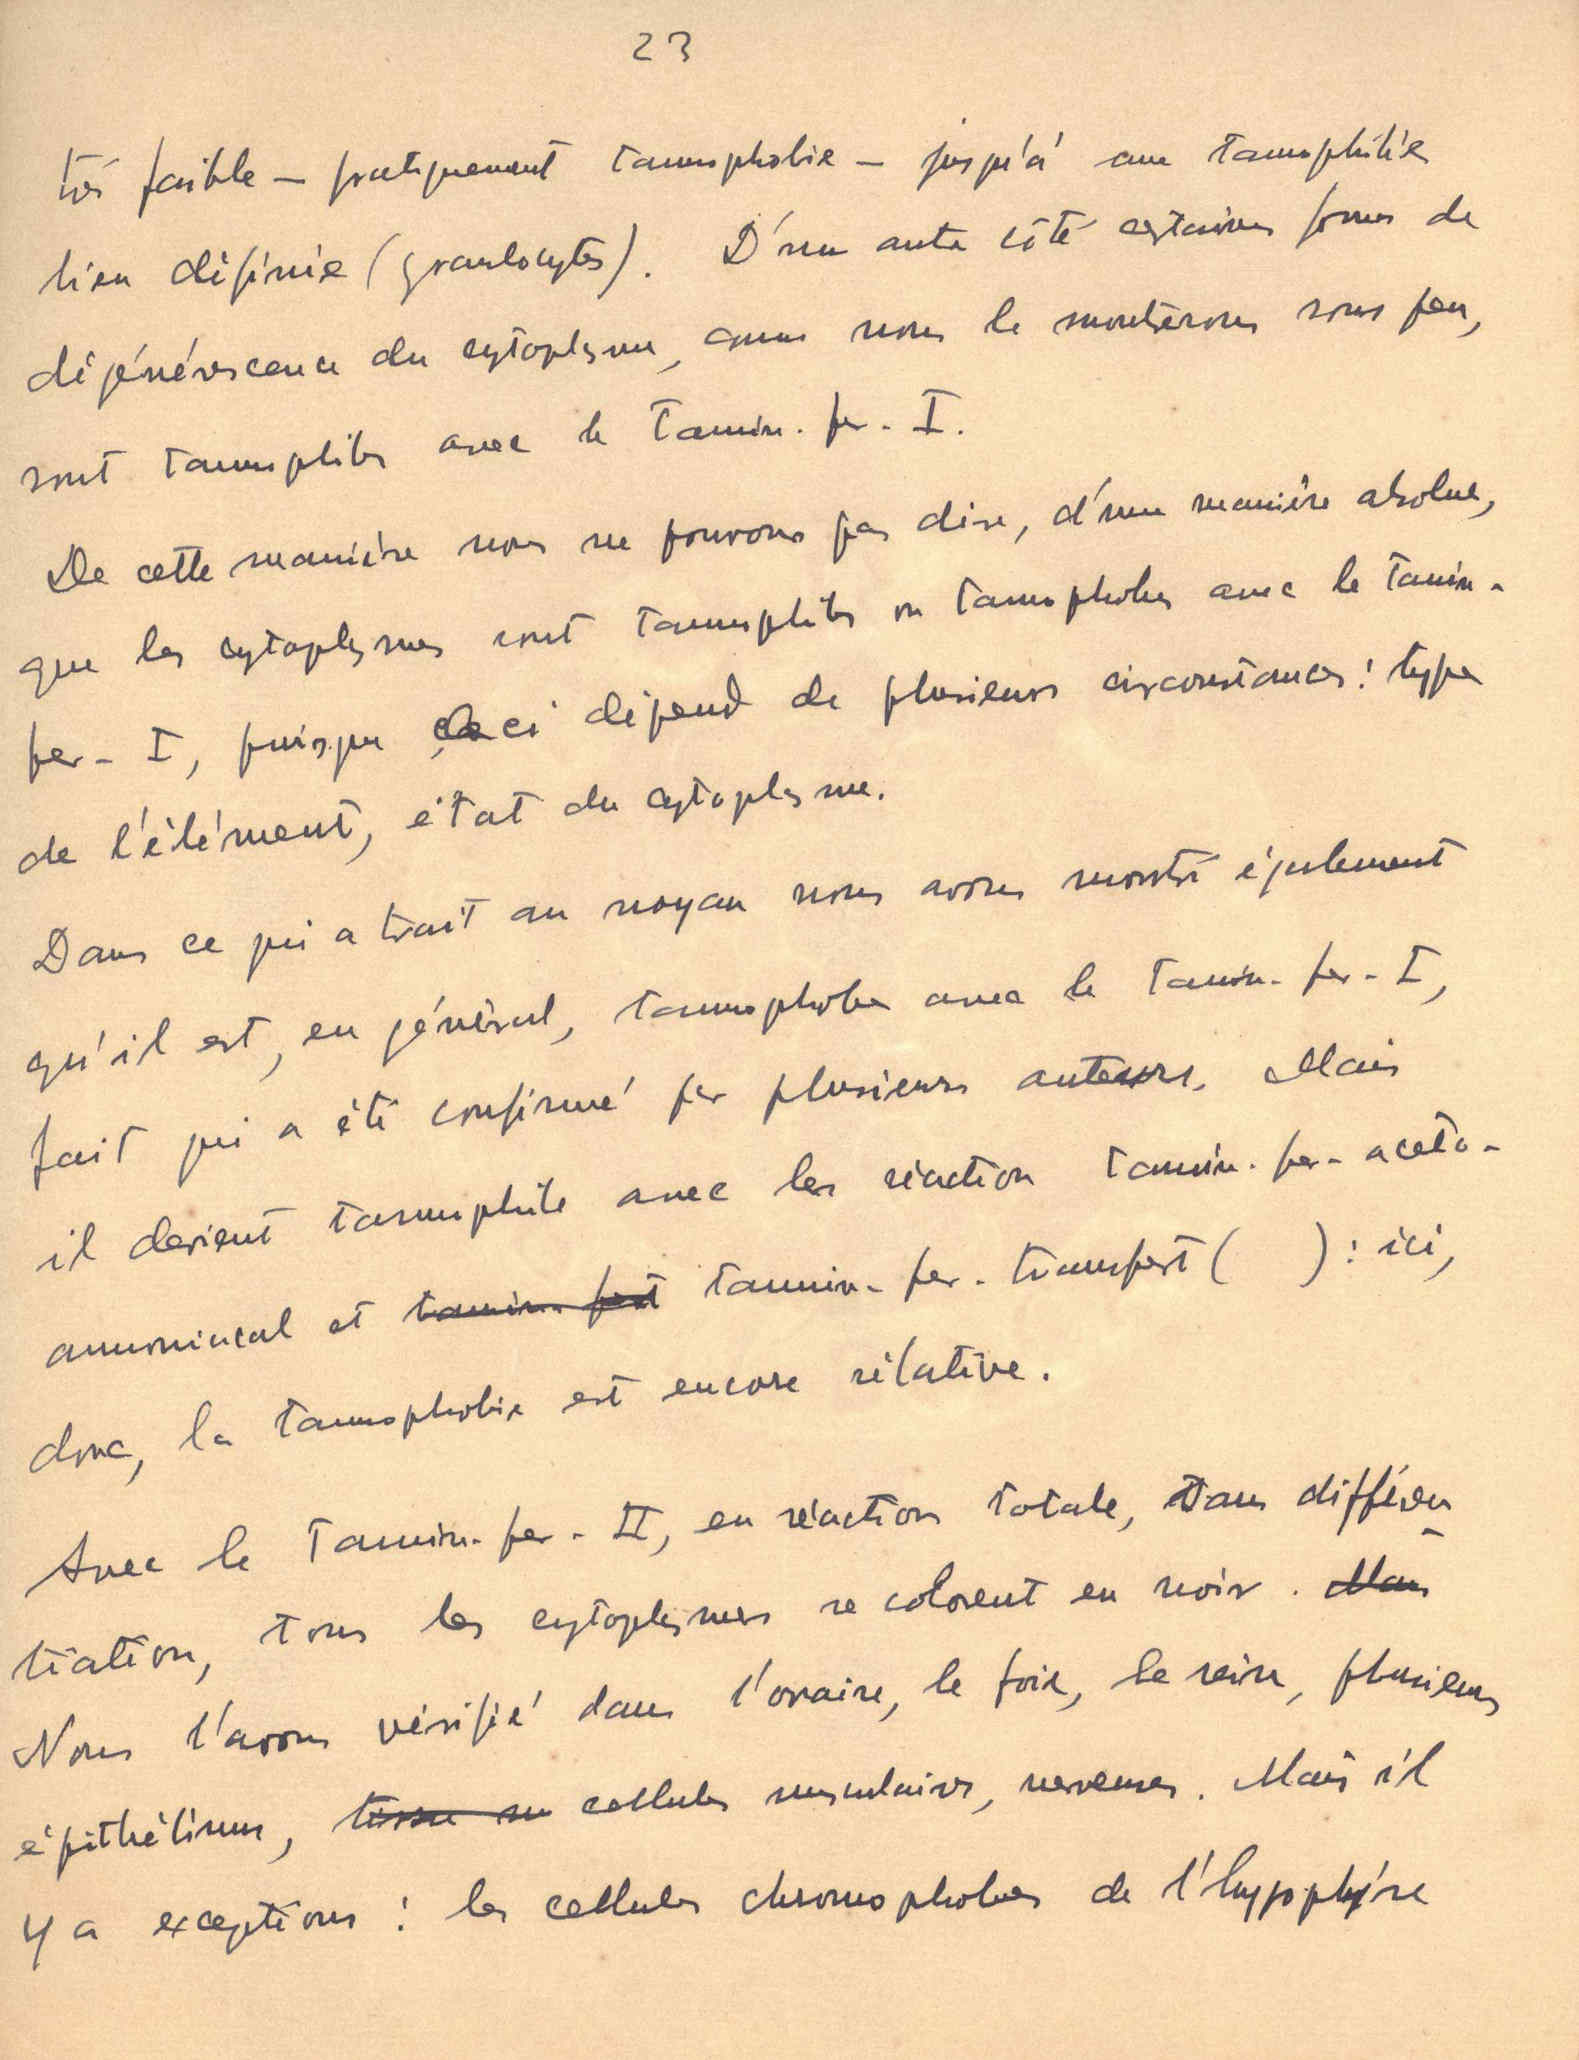 23
très faible — pratiquement tannophobie — jusqu'à une tannophilie
bien définie (granulocytes). D'un autre côté certaines formes de
dégénérescence du cytoplasme, comme nous le montrerons sous peu,
sont tannophiles avec le Tannin-fer-I.
De cette manière nous ne pouvons pas dire, d'une manière absolue,
que les cytoplasmes sont tannophiles ou tannophobes avec le tannin-
fer-I, puisque ceci dépend de plusieurs circonstances: type
de l'élément, état du cytoplasme.
Dans ce qui a trait au noyau nous avons montré également
qu'il est, en général, tannophobe avec le Tannin-fer-I,
fait qui a été confirmé par plusieurs auteurs. Mais
il devient tannophile avec les réaction tannin-fer-aceto-
ammoniacal et tannin-fert tannin-fer-transfert ( ): ici,
donc, la tannophobie est encore rélative.
Avec le Tannin-fer-II, en réaction totale, sans différen
-
tiation, tous les cytoplasmes se colorent en noir. Mais
Nous l'avons vérifié dans l'ovaire, le foie, le rein, plusieurs
épithéliums, tissu cellules musculaires, nerveuses. Mais il
y a exceptions: les cellules chromophobes de l'hypophyse